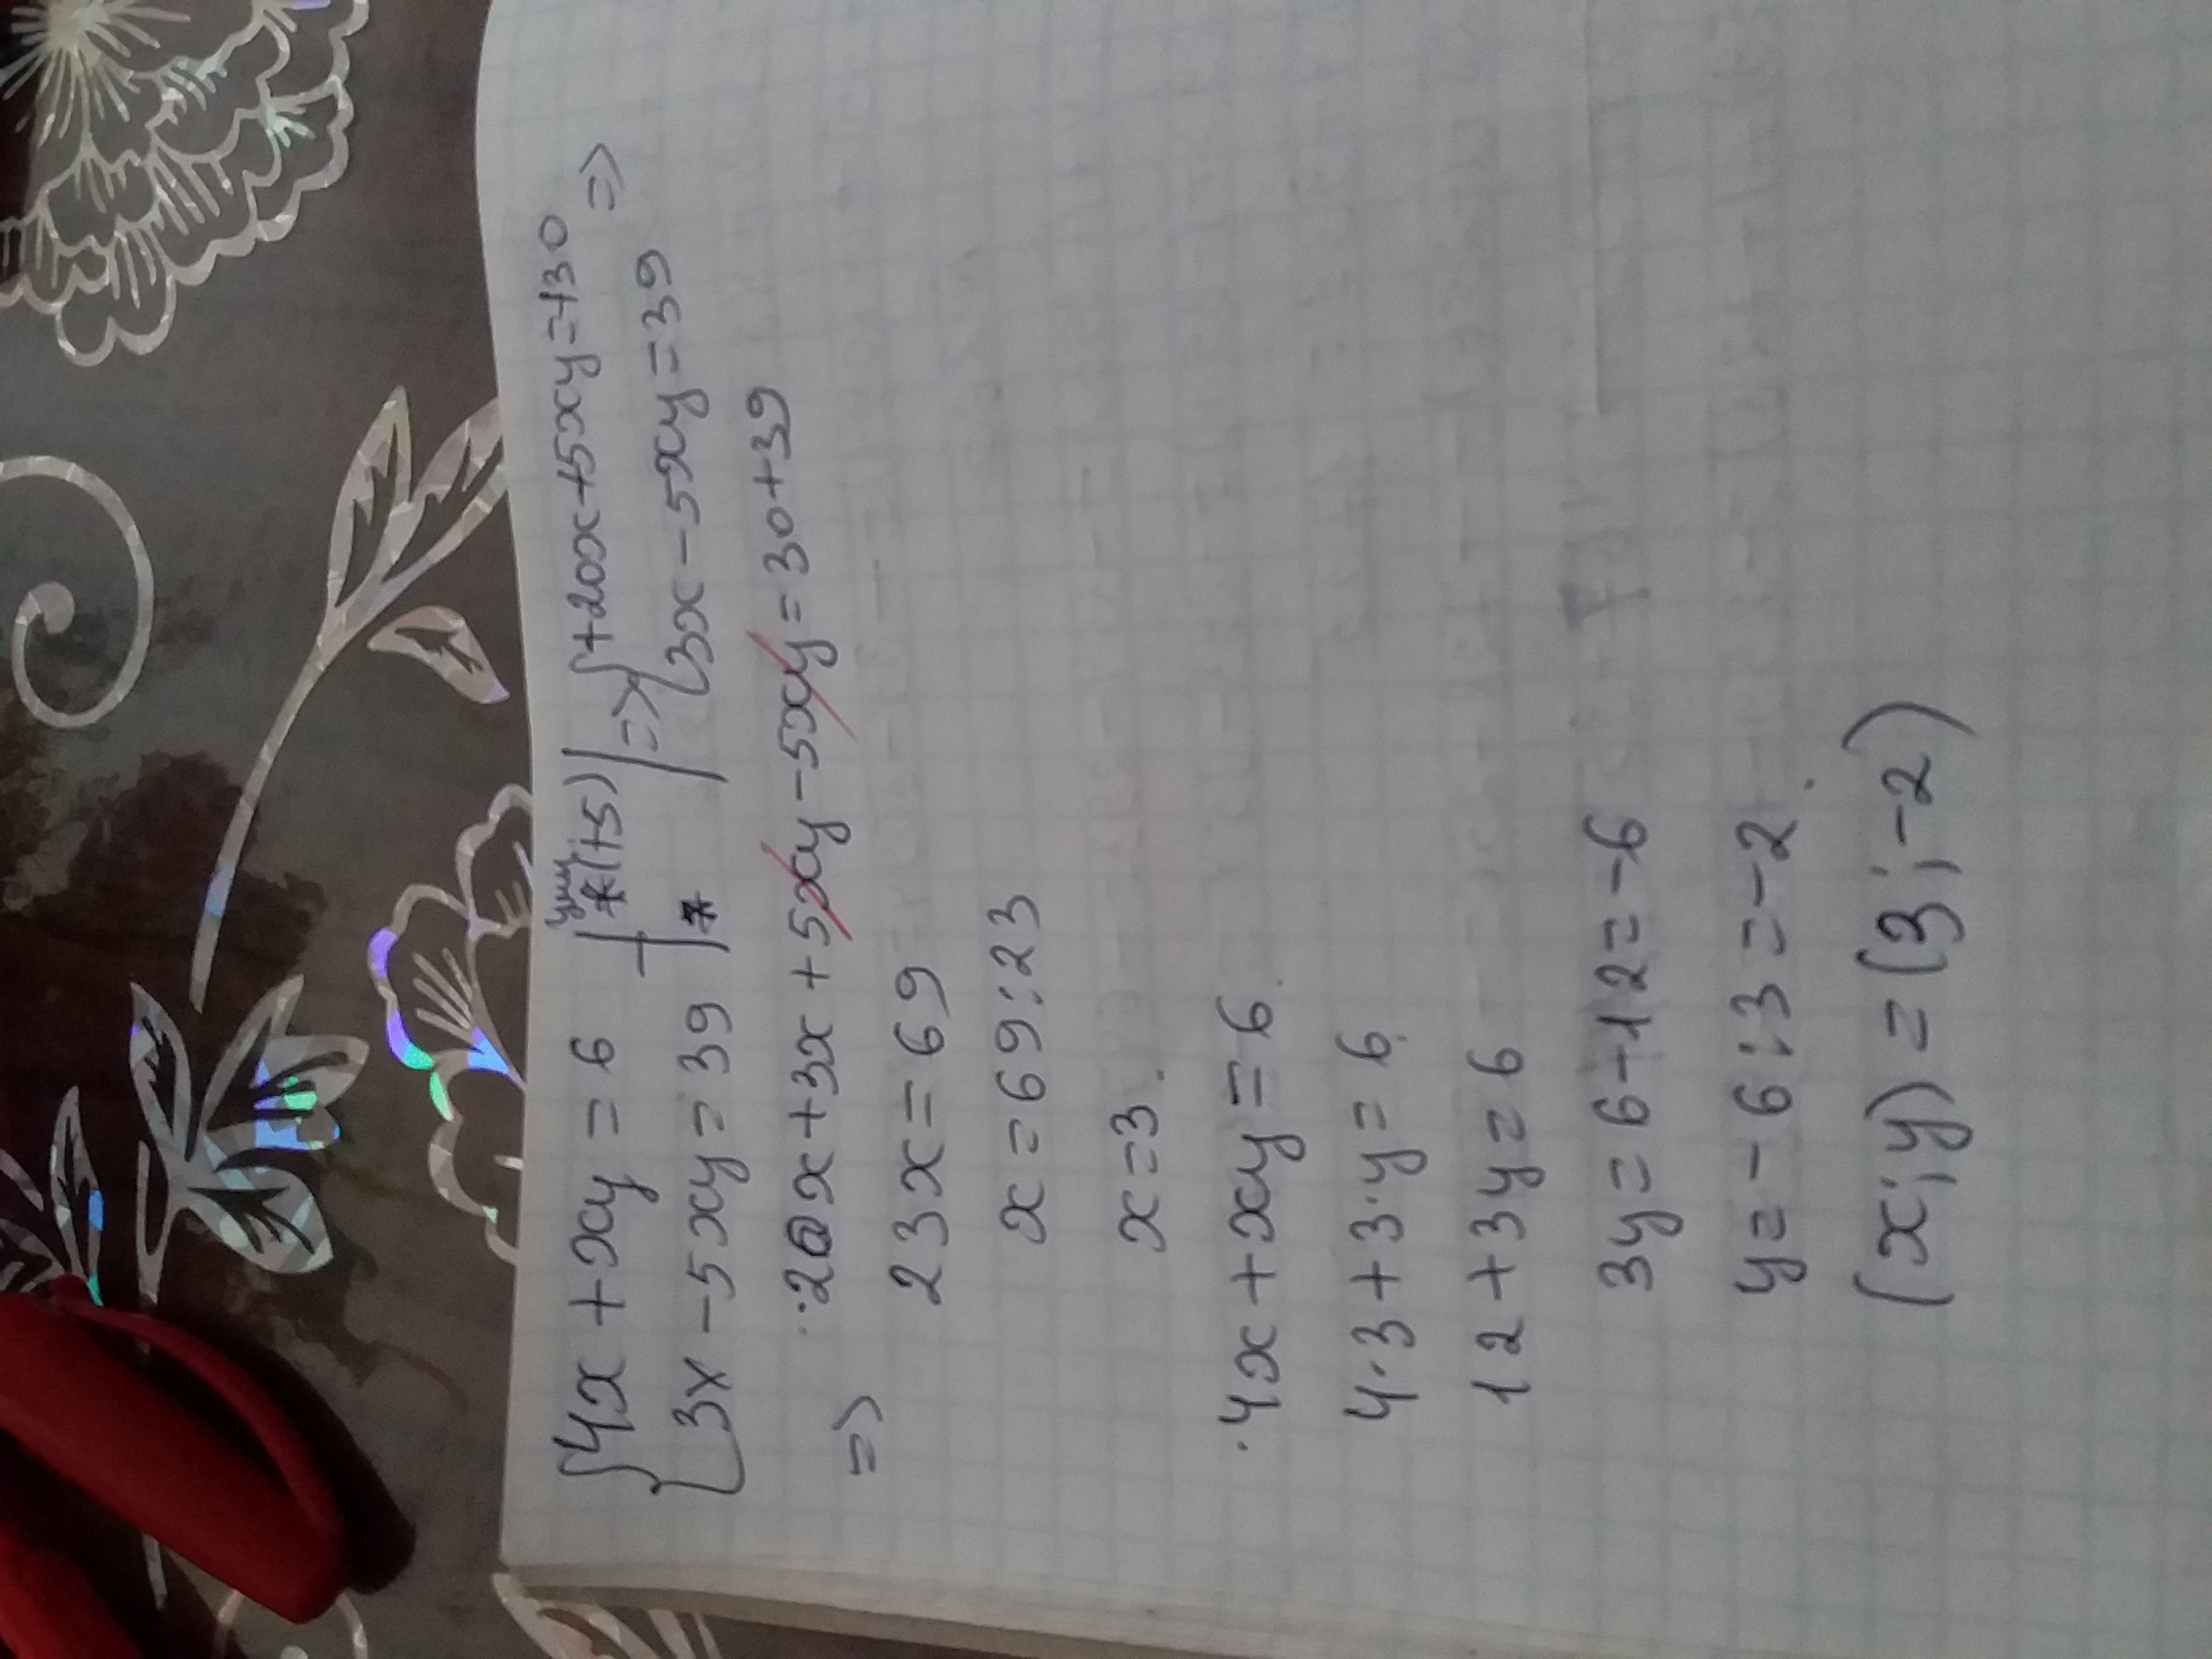 {4x + xy = 6 | * (+5) | => {+20x+5xy=+30 =>
{3x - 5xy = 39 | * | {3x - 5xy = 39
=> 20x + 3x + 5xy - 5xy = 30 + 39
23x = 69
x = 69 : 23
x = 3.
· 4x + xy = 6.
4 · 3 + 3 · y = 6
12 + 3y = 6
3y = 6 - 12 = - 6
y = - 6 : 3 = - 2.
(x ; y) = (3 ; -2)